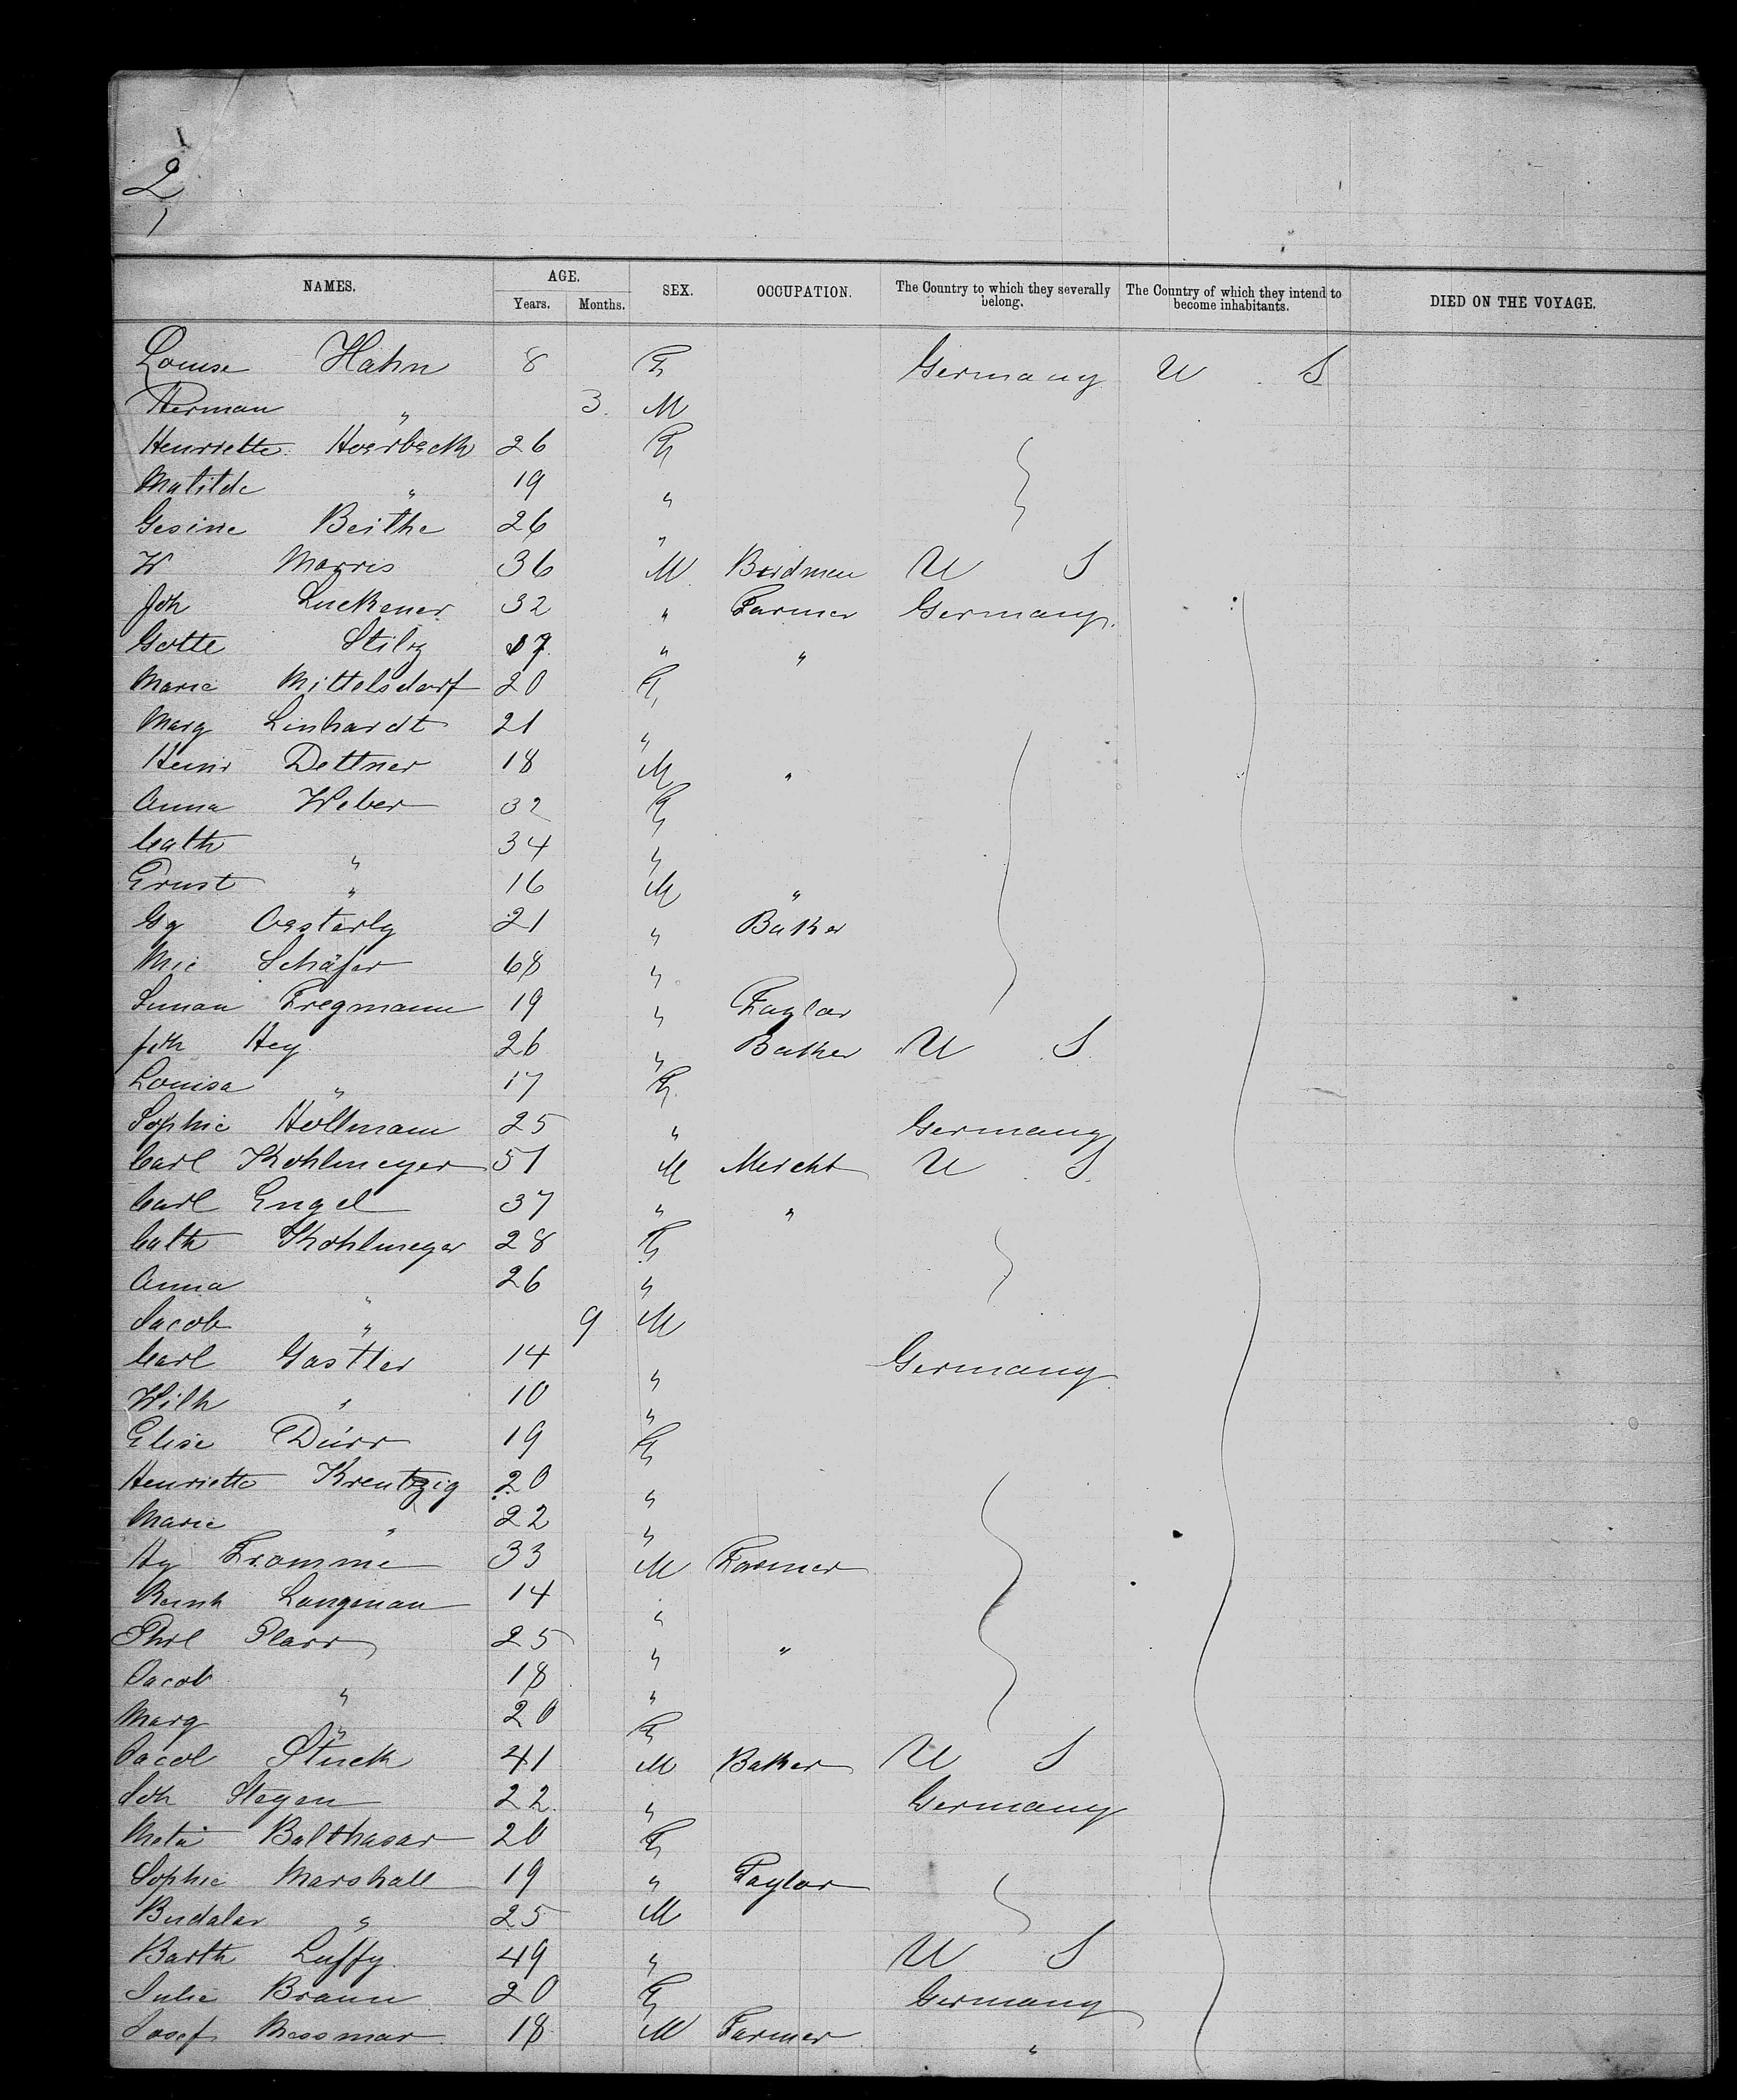 2
NAMES. AGE. SEX. OCCUPATION. The Country to which they severally belong. The Country of which they intend to become inhabitants. DIED ON THE VOYAGE.
Years. Months.
Louise Hahn 8 F Germany U S
Herman " 3 M
Henriette Hoerbeck 26 F
Matilde " 19 "
Gesine Beithe 26 "
W Morris 36 M U S
Joh Luckener 32 " Farmer Germany
Gotte Stilz 17 " "
Marie Mittelsdorf 20 F
Marg Linhardt 21 "
Heinr Dettner 18 M "
Anna Weber 32 F
Cath " 34 "
Ernst " 16 M "
Gg Oesterly 21 " Baker
Mic Schäfer 68 "
Simon Fregmann 19 " Taylor
Joh Hey 26 " Baker U S
Louisa " 17 F
Sophie Höllmann 25 " Germany
Carl Kohlmeyer 51 M Mercht U S
Carl Engel 37 " "
Cath Kohlmeyer 28 F
Anna " 26 "
Jacob " 9 M
Carl Gastler 14 " Germany
Wilh " 10 "
Elise Dürr 19 F
Henriette Kreutzig 20 "
Marie " 22 "
Hy Fromme 33 M Farmer
Reinh Langenau 14 "
Phil Plarr 25 " "
Jacob " 18 "
Marg " 20 F
Jacob Stuck 41 M Baker U S
Joh Stegen 22 " Germany
Meta Balthasar 20 F
Sophie Marshall 19 " Taylor
" 25 M
Barth Luffy 49 " U S
Julie Braun 20 F Germany
Josef Messmar 18 M Farmer "